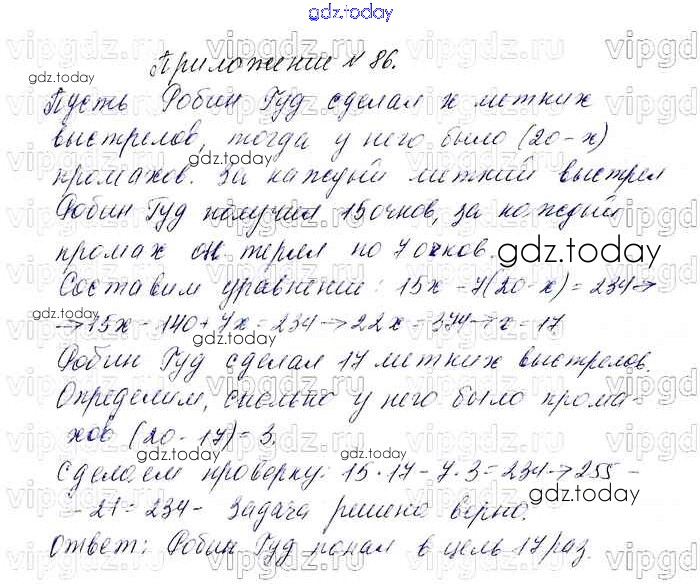 gdz.today
Приложение № 86.
Пусть Робин Гуд сделал х метких
выстрелов, тогда у него было (20-х)
промахов. За каждый меткий выстрел
Робин Гуд получил 15 очков, за каждый
промах он терял по 7 очков.
Составим уравнение: 15х - 7(20-х) = 234→
→15х - 140 + 7х = 234→22х = 374→х = 17
Робин Гуд сделал 17 метких выстрелов.
Определим, сколько у него было прома-
хов (20 - 17) = 3.
Сделаем проверку: 15·17 - 7·3 = 234→255 -
- 21 = 234 - Задача решена верно.
Ответ: Робин Гуд попал в цель 17 раз.